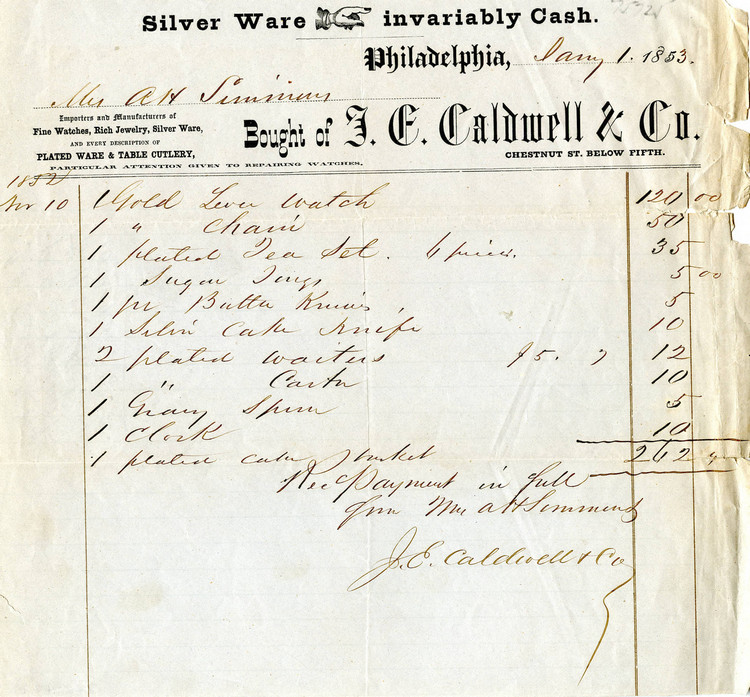 Silver Ware invariably Cash.
Philadelphia, Jany 1. 1853.
Mrs A H Simmons
Importers and Manufacturers of
Fine Watches, Rich Jewelry, Silver Ware,
AND EVERY DESCRIPTION OF
PLATED WARE & TABLE CUTLERY,
PARTICULAR ATTENTION GIVEN TO REPAIRING WATCHES.
Bought of J. E. Caldwell & Co.
CHESTNUT ST. BELOW FIFTH.
1852
10 1 Gold Lever Watch 120 00
1 " Chain 50
1 plated Tea Set. 6 pieces. 35
1 Sugar Tongs 5 00
1 pr Butter Knives 5
1 Silver Cake Knife 10
2 plated Waiters 5. 7 12
1 " Castor 10
1 Gravy Spoon 5
1 Clock 10
1 plated cake basket 262
Rec Payment in full
from Mrs A H Simmons
J. E. Caldwell & Co